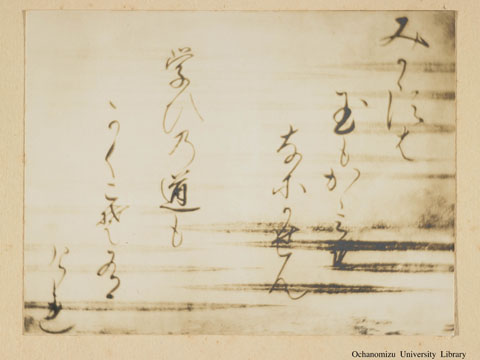 みかゝすは
玉もかゝみも
なにかせん
学ひの道も
かくこそ有
けれ
Ochanomizu University Library